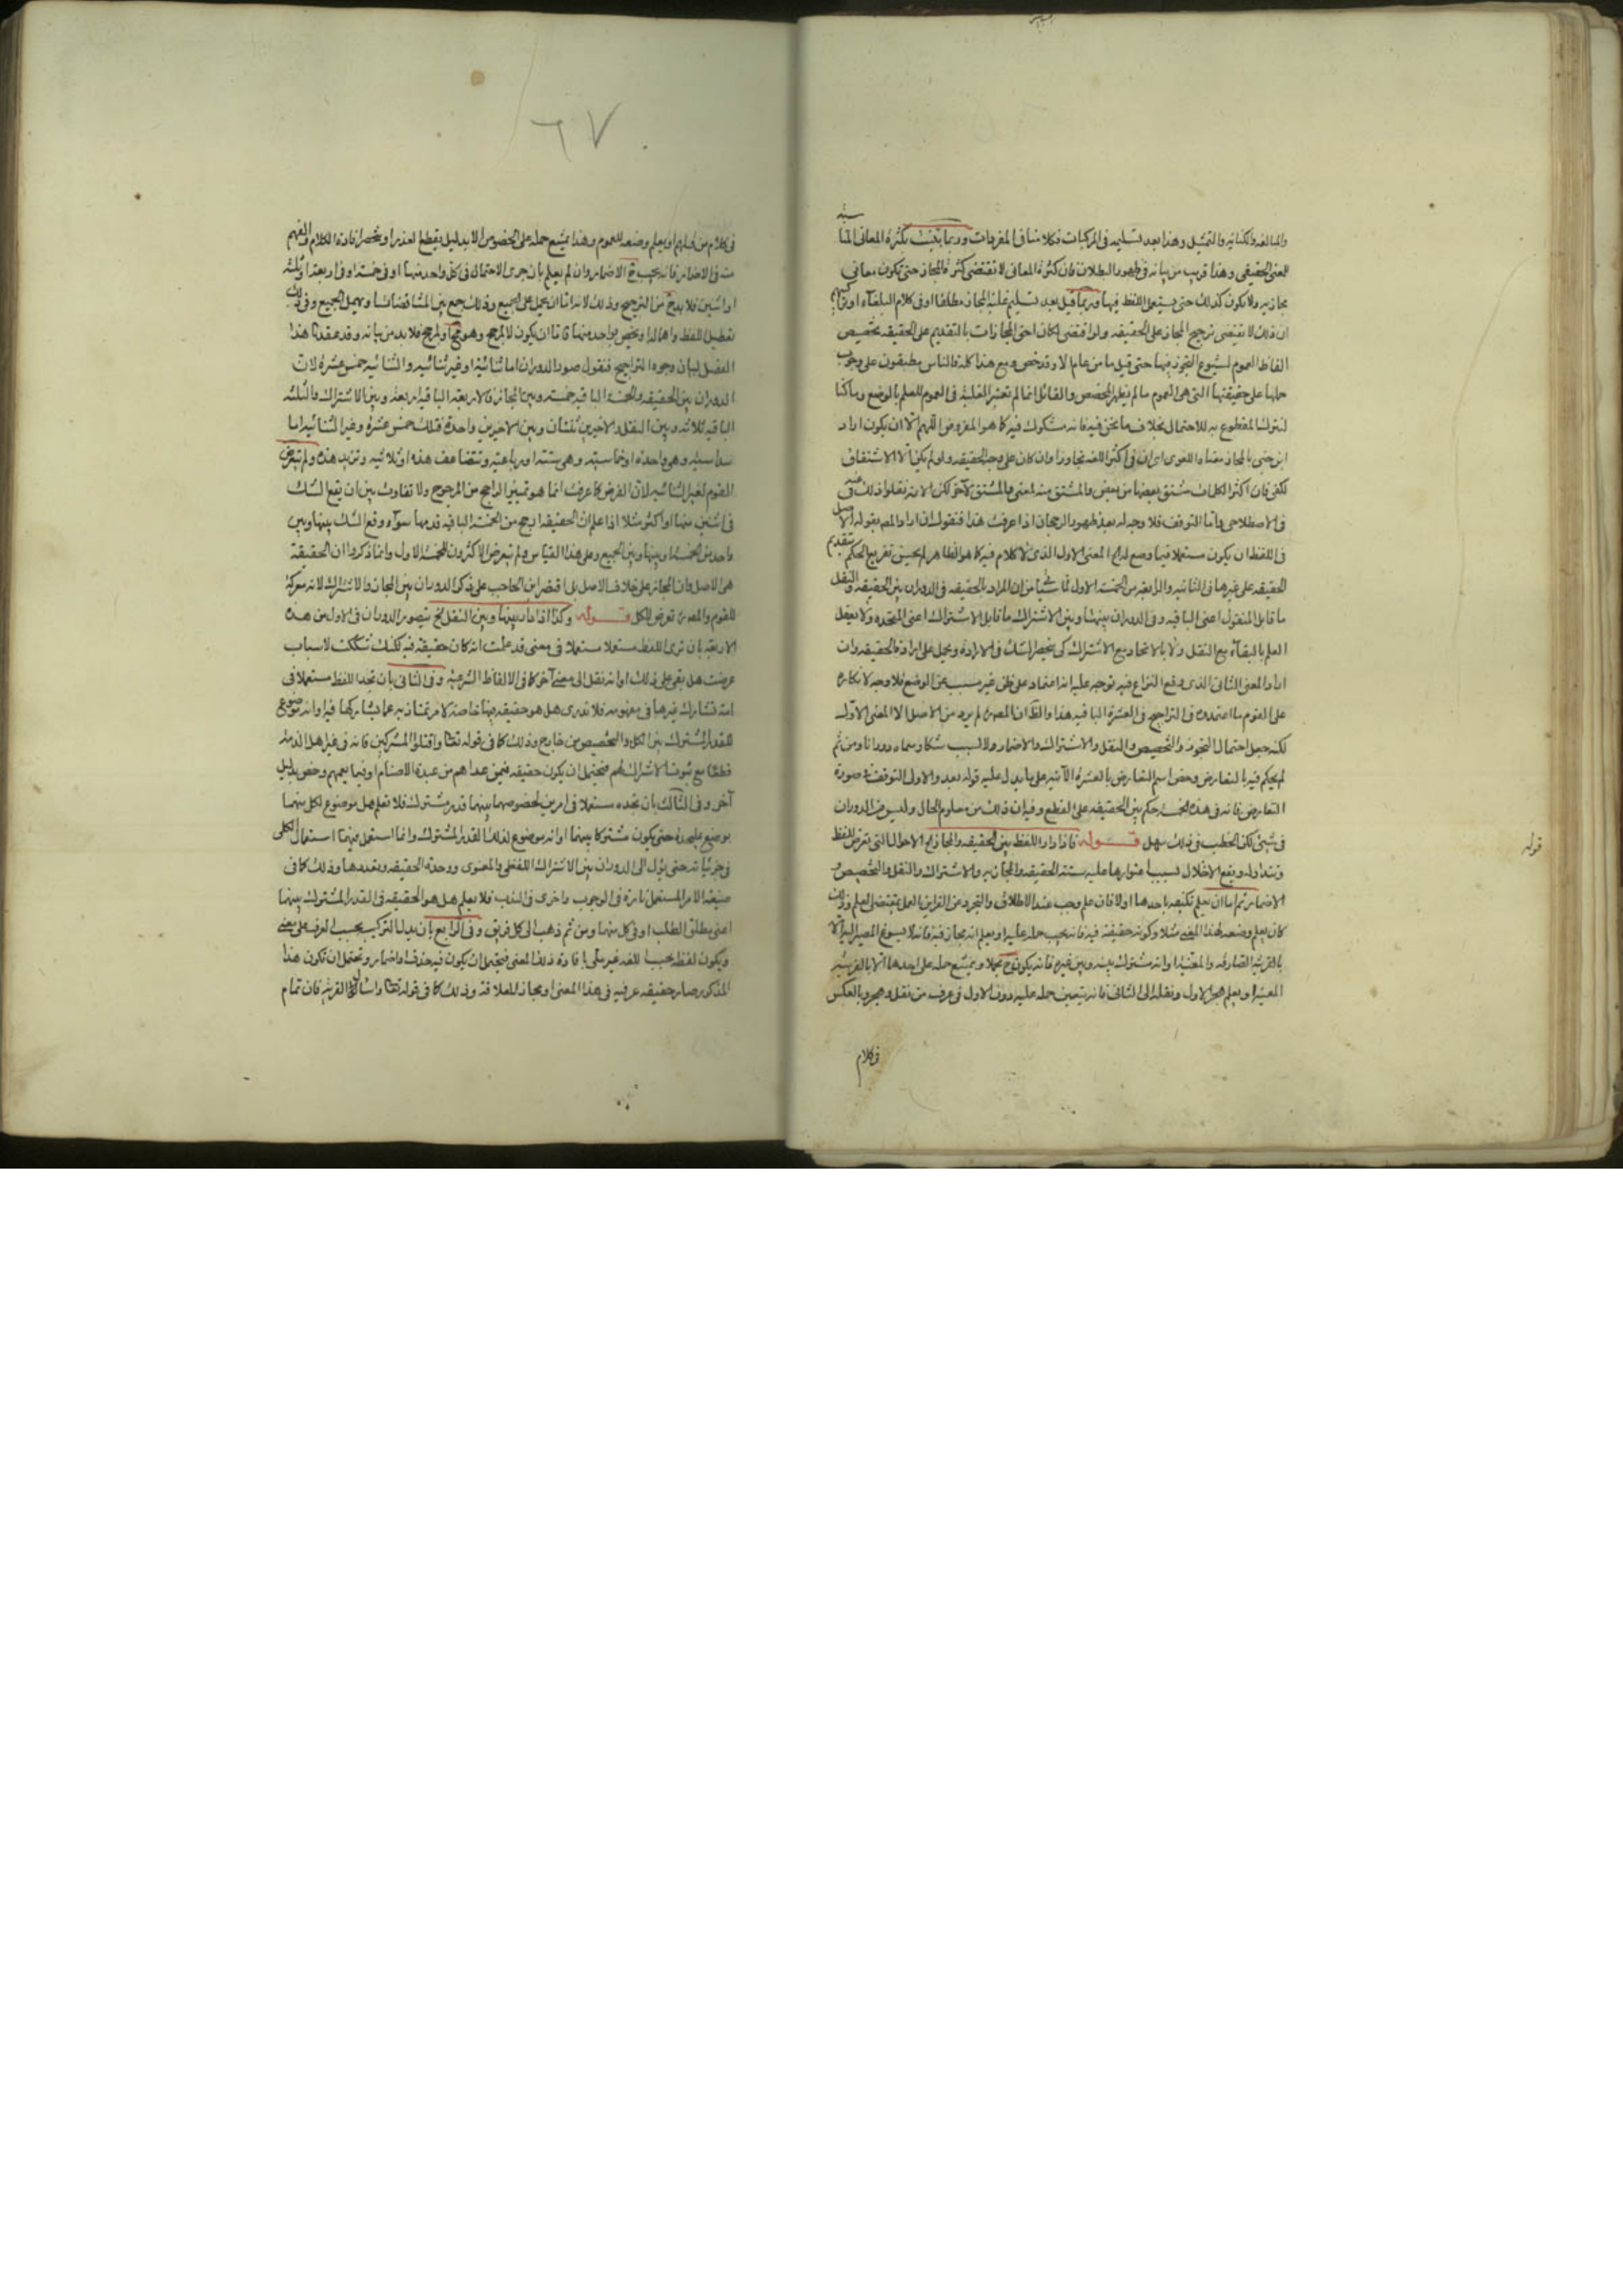 والمبالغة والكناية والتمثيل وهذا بعد تسليمه في المركبات فكلامنا في المفردات وربما يثبت بكثرة المعاني المنا
سبة
للمعنى الحقيقي وهذا قريب من بيانه في ظهور البطلان فان كثرة المعاني لا تقتضي كثرة المجاز حتى تكون معاني
مجازيه ولا يكون كذلك حتى يستعمل اللفظ فيها وربما قيل بعد تسليم غلبة المجاز مطلقا او في كلام البلغاء
ان ذلك لا تقتضي ترجيح المجاز على الحقيقه ولو اقتضى لكان احق المجازات بالتقديم على الحقيقه تخصيص
الفاظ العموم لشيوع التجوز فيها حتى قيل ما من عام الا وقد خص ومع هذا كله فالناس مطبقون على وجوب
حملها على حقيقتها التي هي العموم ما لم يظهر المخصص والقائل انما لم تعتبر الغلبة في العموم للعلم بالوضع وما كنا
لنترك المقطوع به للاحتمال بخلاف ما نحن فيه فانه مشكوك فيه كما هو المفروض اللهم الا ان يكون اراد
ابن جني بالمجاز معناه اللغوي اي ان في اكثر اللغه تجاوزا وان كان على وجه الحقيقه ولو لم يكن الا الاشتقاق
لكفى فان اكثر الكلمات مشتق بعضها من بعض والمشتق منه لمعنى والمشتق لآخر لكن الامر نقلوا ذلك عنه في
في الاصطلاحي واما التوقف فلا وجه له بعد ظهور الرجحان اذا عرفت هذا فنقول ان اراد المص بقوله الاصل
في اللفظ ان يكون مستعملا فيما وضع له المعنى الاول الذي لا كلام فيه كما هو الظاهر لم يحسن تفريع الحكم بتقديم
الحقيقه على غيرها في الثانيه والرابعه من الخمسة الاول لان المراد بالحقيقه في الدوران بين الحقيقه والنقل
ما قابل المنقول اعني الباقيه وفي الدوران بينها وبين الاشتراك ما قابل الاشتراك اعني المتحده ولا يعقل
العلم بالبقاء مع النقل ولا بالاتحاد مع الاشتراك كي ينحصر الشك في الاراده ويحمل على ارادة الحقيقه وان
اراد المعنى الثاني الذي وقع النزاع فيه توجه عليه انه اعتماد على ظن غير مسبب عن الوضع فلا وجه لانكاره
على القوم ما اعتمدوه في التراجيح في العشرة الباقيه هذا والظ ان المص لم يرد من الاصل الا المعنى الاول
لكنه جعل احتمال التجوز والتخصيص والنقل والاشتراك والاضمار ولا سبب شكا وسماه دورانا ومن ثم
لم يحكم فيه بالتعارض وخص اسم التعارض بالعشرة الآتيه على ما يدل عليه قوله بعد والاولى التوقف في صورة
التعارض فانه في هذه الخمسة حكم بتقديم الحقيقه على القطع وفيه ان ذلك من معلوم الحال وليس من الدوران
في شيء لكن الخطب في ذلك سهل قوله فاذا دار اللفظ بين الحقيقه والمجاز الاحوال التي تعرض للفظ
وتتداوله ويقع الاخلال بسبب اعتوارها عليه ستة الحقيقه والمجازيه والاشتراك والنقل والتخصيص و
الاضمار ثم اما ان يعلم تكيفه باحدها اولا فان علم وجب عند الاطلاق والتجرد من القراين العمل بمقتضى العلم وذلك
كان يعلم وضعه لهذا المعنى مثلا وكونه حقيقة فيه فانه يجب حمله عليه او يعلم انه مجاز فيه فانه لا يسوغ المصير اليه الا
بالقرينه الصارفه والمعينه او انه مشترك بينه وبين غيره فانه يكون ح مجملا ويمتنع حمله على احدها الا بالقرينه
المعينه او يعلم هجر الاول ونقله الى الثاني فانه يتعين حمله عليه دون الاول في عرف من نقل وهجر وبالعكس
في كلام
قوله
٦٧
في كلام من قبلهم او يعلم وضعه للعموم وهذا يمتنع حمله على الخصوص الا بدليل يقطع العذر او ينحصر افادة الكلام والفهم
منه في الاضمار فانه يجب ح الاضمار وان لم يعلم بان جرى الاحتمال في كل واحد منها او في خمسة او في اربعه او ثلثة
او اثنين فلا بد ح من الترجيح وذلك لانه اما ان يحمل على الجميع وذلك جمع بين المتناقضات او يهمل الجميع وفي ذلك
تعطيل اللفظ واهماله او يخص بواحد منها فاما ان يكون لا لمرجح وهو قبيح او لمرجح فلا بد من بيانه وقد عقدنا هذا
الفصل لبيان وجوه التراجيح فنقول صور الدوران اما ثنائية او غير ثنائيه والثنائيه خمس عشرة لان
الدوران بين الحقيقه والخمسة الباقيه خمسة وبين المجاز والاربعه الباقيه اربعة وبين الاشتراك والثلثه
الباقيه ثلاثه وبين النقل والاخيرين ثنتان وبين الاخيرين واحدة فتلك خمس عشرة وغير الثنائيه اما
سداسيه وهي واحدة او خماسيه وهي ستة او رباعيه وتتضاعف هذه او ثلاثيه وتزيد هذه ولم يتعرض
القوم لغير الثنائيه لان الغرض كما عرفت انما هو تمييز الراجح من المرجوح ولا تفاوت بين ان يقع الشك
في اثنين منها او اكثر مثلا اذا علم ان الحقيقه ارجح من الخمسة الباقيه قدمها سواء وقع الشك بينها وبين
واحد من الخمسة او بينها وبين الجميع وعلى هذا القياس ولم يتعرض الاكثرون للخمسة الاول وانما ذكروا ان الحقيقة
هي الاصل وان المجاز على خلاف الاصل بل اقتصر ابن الحاجب على ذكر الدوران بين المجاز والاشتراك لانه معركة
للقوم والمص تعرض للكل قوله وكذا اذا دار بينها وبين النقل الخ يتصور الدوران في الاول من هذه
الاربعه بان ترى اللفظ مستعملا في معنى قد علمت انه كان حقيقة فيه لكنك تشككت لاسباب
عرضت هل بقي على ذلك او انه نقل الى معنى آخر كما في الالفاظ الشرعيه وفي الثاني بان تجد اللفظ مستعملا في
تشارك غيرها في مفهومه فلا تدري هل هو حقيقه فيها خاصة لامر تمتاز به عما يشاركها فيه او انه موضوع
للقدر المشترك بين الكل والتخصيص من خارج وذلك كما في قوله تعالى واقتلوا المشركين فانه في غير اهل الذمه
قطعا مع ثبوت الاشراك لهم فيحتمل ان يكون حقيقه فيمن عداهم من عبدة الاصنام او فيما يعمهم وخص بدليل
آخر وفي الثالث بان تجده مستعملا في امرين لخصوصهما بينهما قدر مشترك فلا تعلم هل موضوع لكل منهما
بوضع عليحده حتى يكون مشتركا بينهما او انه موضوع لذلك القدر المشترك وانما استعمل فيهما استعمال الكلي
في جزئياته حتى يؤل الى الدوران بين الاشتراك اللفظي والمعنوي ووحدة الحقيقه وتعددها وذلك كما في
صيغة الامر المستعمل تارة في الوجوب واخرى في الندب فلا يعلم هل هو الحقيقه في القدر المشترك بينهما
اعني مطلق الطلب او في كل منهما ومن ثم ذهب الى كل فريق وفي الرابع بان يدل التركيب بحسب العرف على معنى
ويكون لفظه بحسب اللغه غير ملي بافادة ذلك المعنى فيحتمل ان يكون فيه حذف واضمار ويحتمل ان تكون هذا
المذكور صار حقيقه عرفيه في هذا المعنى او مجازا للعلاقة وذلك كما في قوله تعالى واسال القرية فان تمام